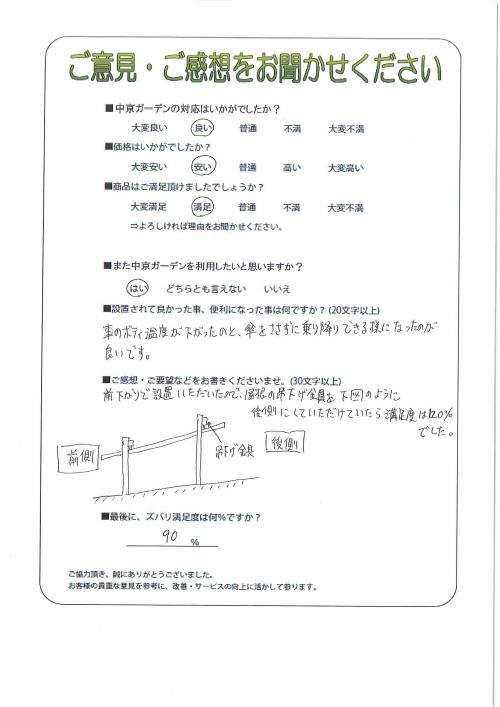 ご意見・ご感想をお聞かせください
■中京ガーデンの対応はいかがでしたか？
大変良い 良い 普通 不満 大変不満
■価格はいかがでしたか？
大変安い 安い 普通 高い 大変高い
■商品はご満足頂けましたでしょうか？
大変満足 満足 普通 不満 大変不満
⇒よろしければ理由をお聞かせください。
■また中京ガーデンを利用したいと思いますか？
はい どちらとも言えない いいえ
■設置されて良かった事、便利になった事は何ですか？(20文字以上)
車のボディ温度が下がったのと、傘をささずに乗り降りできる様になったのが
良いです。
■ご感想・ご要望などをお書きくださいませ。(30文字以上)
前下がりで設置いただいたので、屋根の吊下げ金具を下図のように
後側にしていただけていたら満足度は120%
でした。
前側
吊下げ金具
後側
■最後に、ズバリ満足度は何%ですか？
90 %
ご協力頂き、誠にありがとうございました。
お客様の貴重な意見を参考に、改善・サービスの向上に活かして参ります。